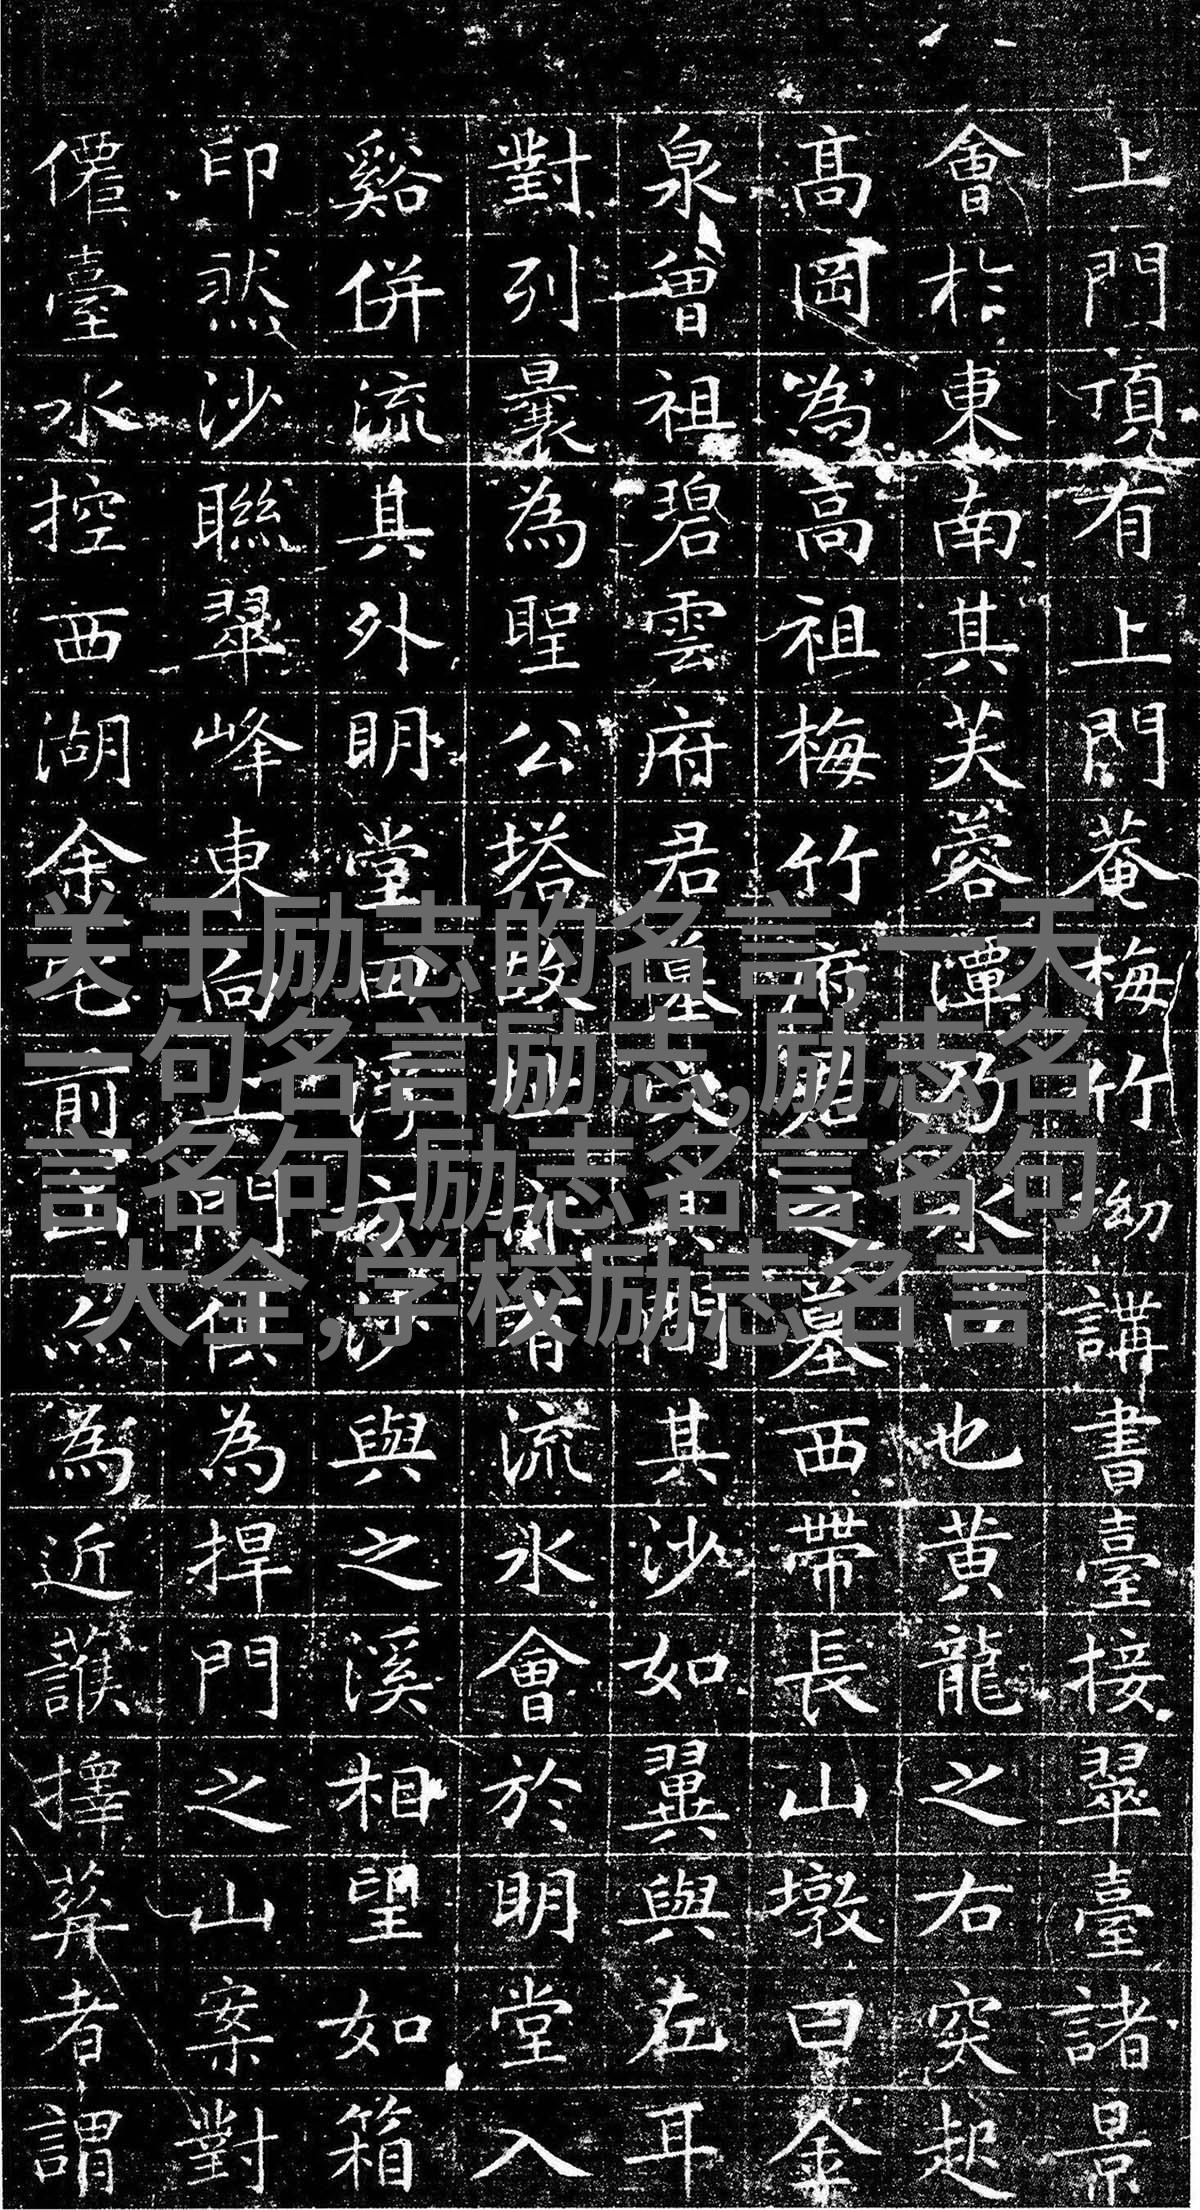 上門頂有上門菴梅竹幼講書臺接翠臺諸景
會於東南其芙蓉潭乃水口也黃龍之右突起
高岡為高祖梅竹府君之墓西帶長山墩曰金
泉曾祖碧雲府君墓穴其間其沙如翼與左耳
對列曩為聖公塔故址流水會於明堂入
谿併流其外明堂四方沙與之溪相望如箱
印然沙聯翠峰東向上門供為捍門之山案對
僊臺水控西湖余宅前為近護擇葬者謂
关于励志的名言,一天
一句名言励志,励志名
言名句,励志名言名句
大全,学校励志名言